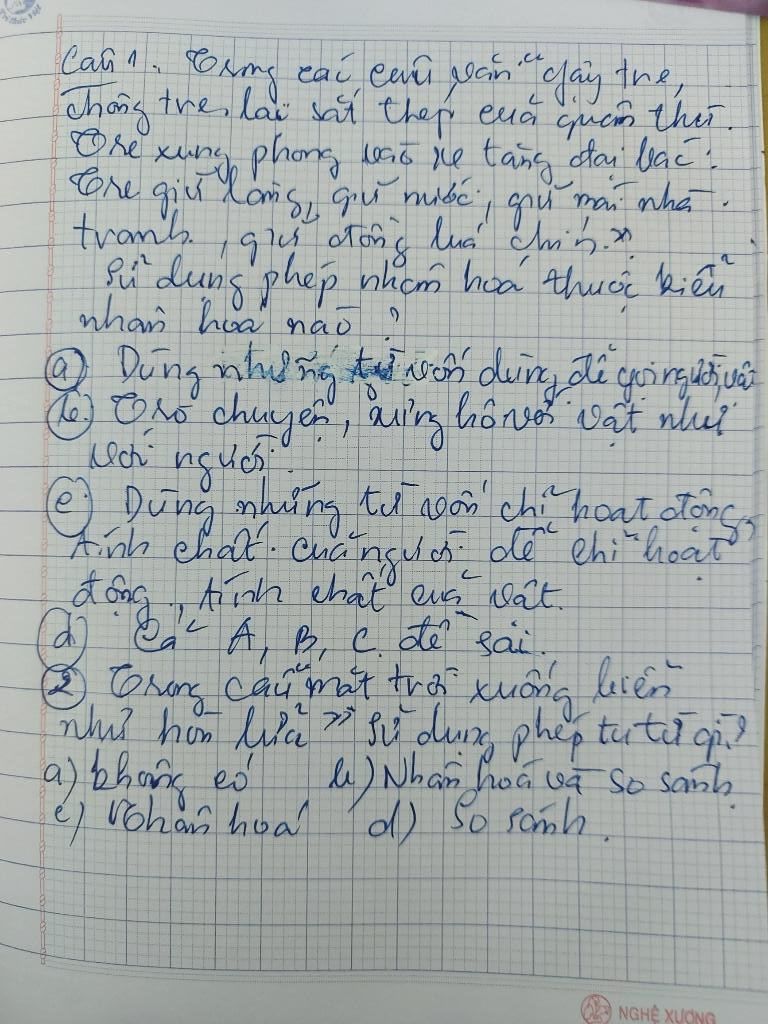 Câu 1. Trong các câu văn "Gậy tre,
chông tre, lại sắt thép của quân thù.
Tre xung phong vào xe tăng đại bác.
Tre giữ làng, giữ nước, giữ mái nhà
tranh, giữ đồng lúa chín."
Sử dụng phép nhân hoá thuộc kiểu
nhân hoá nào?
a) Dùng những từ vốn dùng để gọi người, vật
b) Trò chuyện, xưng hô với vật như
với người.
c) Dùng những từ vốn chỉ hoạt động,
tính chất của người để chỉ hoạt
động, tính chất của vật.
d) Cả A, B, C đề sai.
2 Trong câu "mặt trời xuống biển
như hòn lửa" sử dụng phép tu từ gì?
a) không có b) Nhân hoá và so sánh
c) Nhân hoá d) So sánh.
NGHỆ XƯƠNG